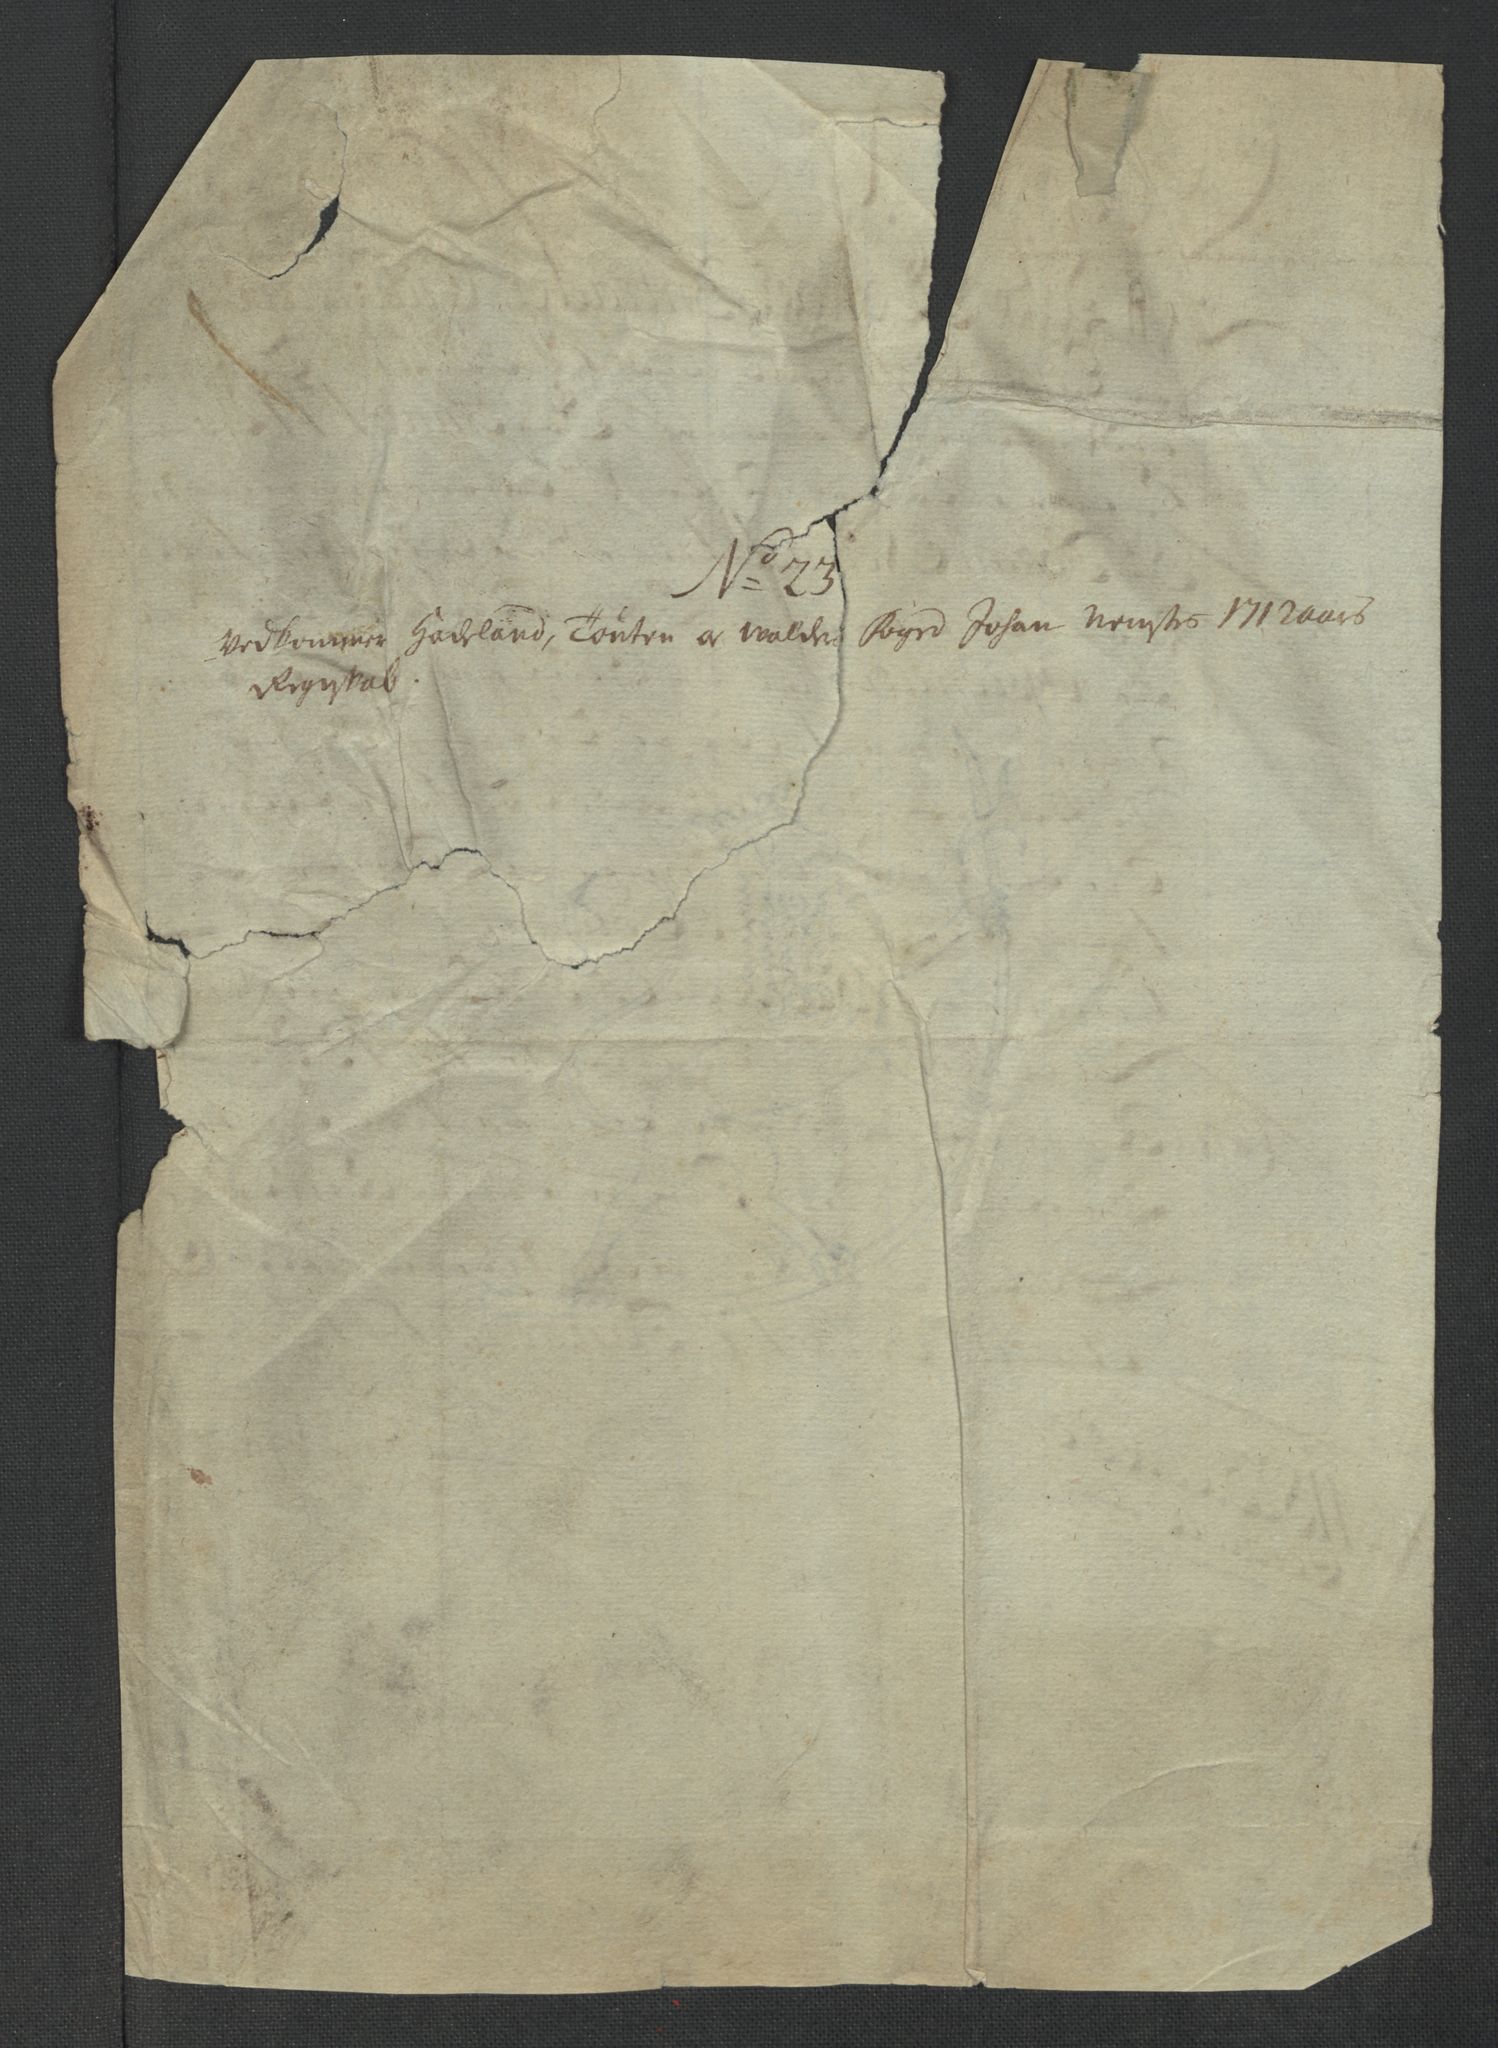 No 23
Vedkommer Hadeland, Touten oc Walders Foged Johan 1712 aars
Regnskab.